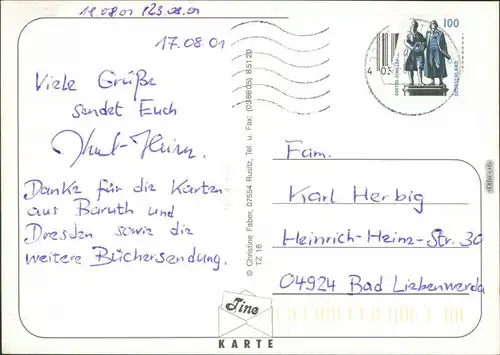 19.08.01 /23.08.01
17.08.01
Viele Grüße
sendet Euch
Danke für die Karten
aus Baruth und
Dresden sowie die
weitere Büchersendung.
© Christine Faber, 07554 Rusitz, Tel. u. Fax: (036605) 85120
TZ 16
100
DEUTSCHLAND
Fam.
Karl Herbig
Heinrich-Heine-Str. 30
04924 Bad Liebenwerda
Tine
KARTE